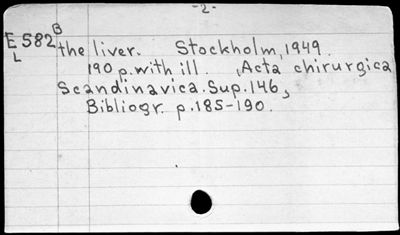 -2-
B
E582 the liver. Stockholm, 1949.
L
190 p. with ill. (Acta chirurgica
Scandinavica. Sup. 146)
Bibliogr. p. 185-190.